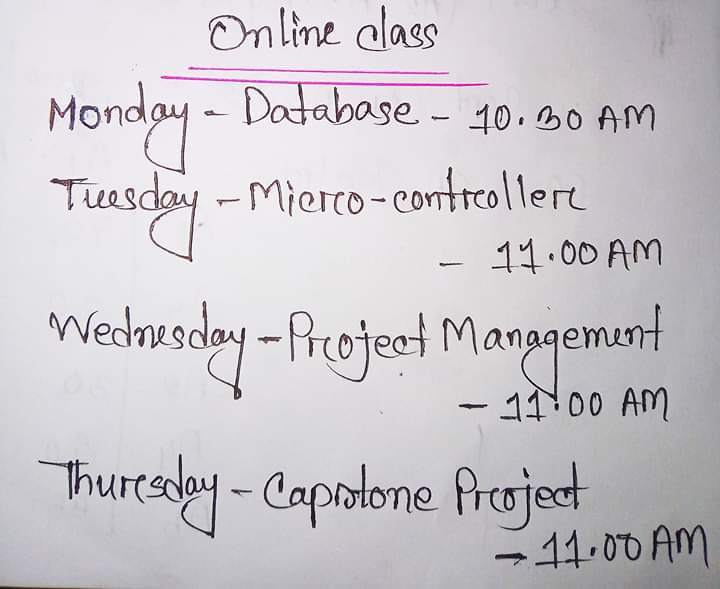 Online class
Monday - Database - 10.30 AM
Tuesday - Micro-controller
- 11.00 AM
Wednesday - Project Management
- 11.00 AM
Thursday - Capstone Project
- 11.00 AM